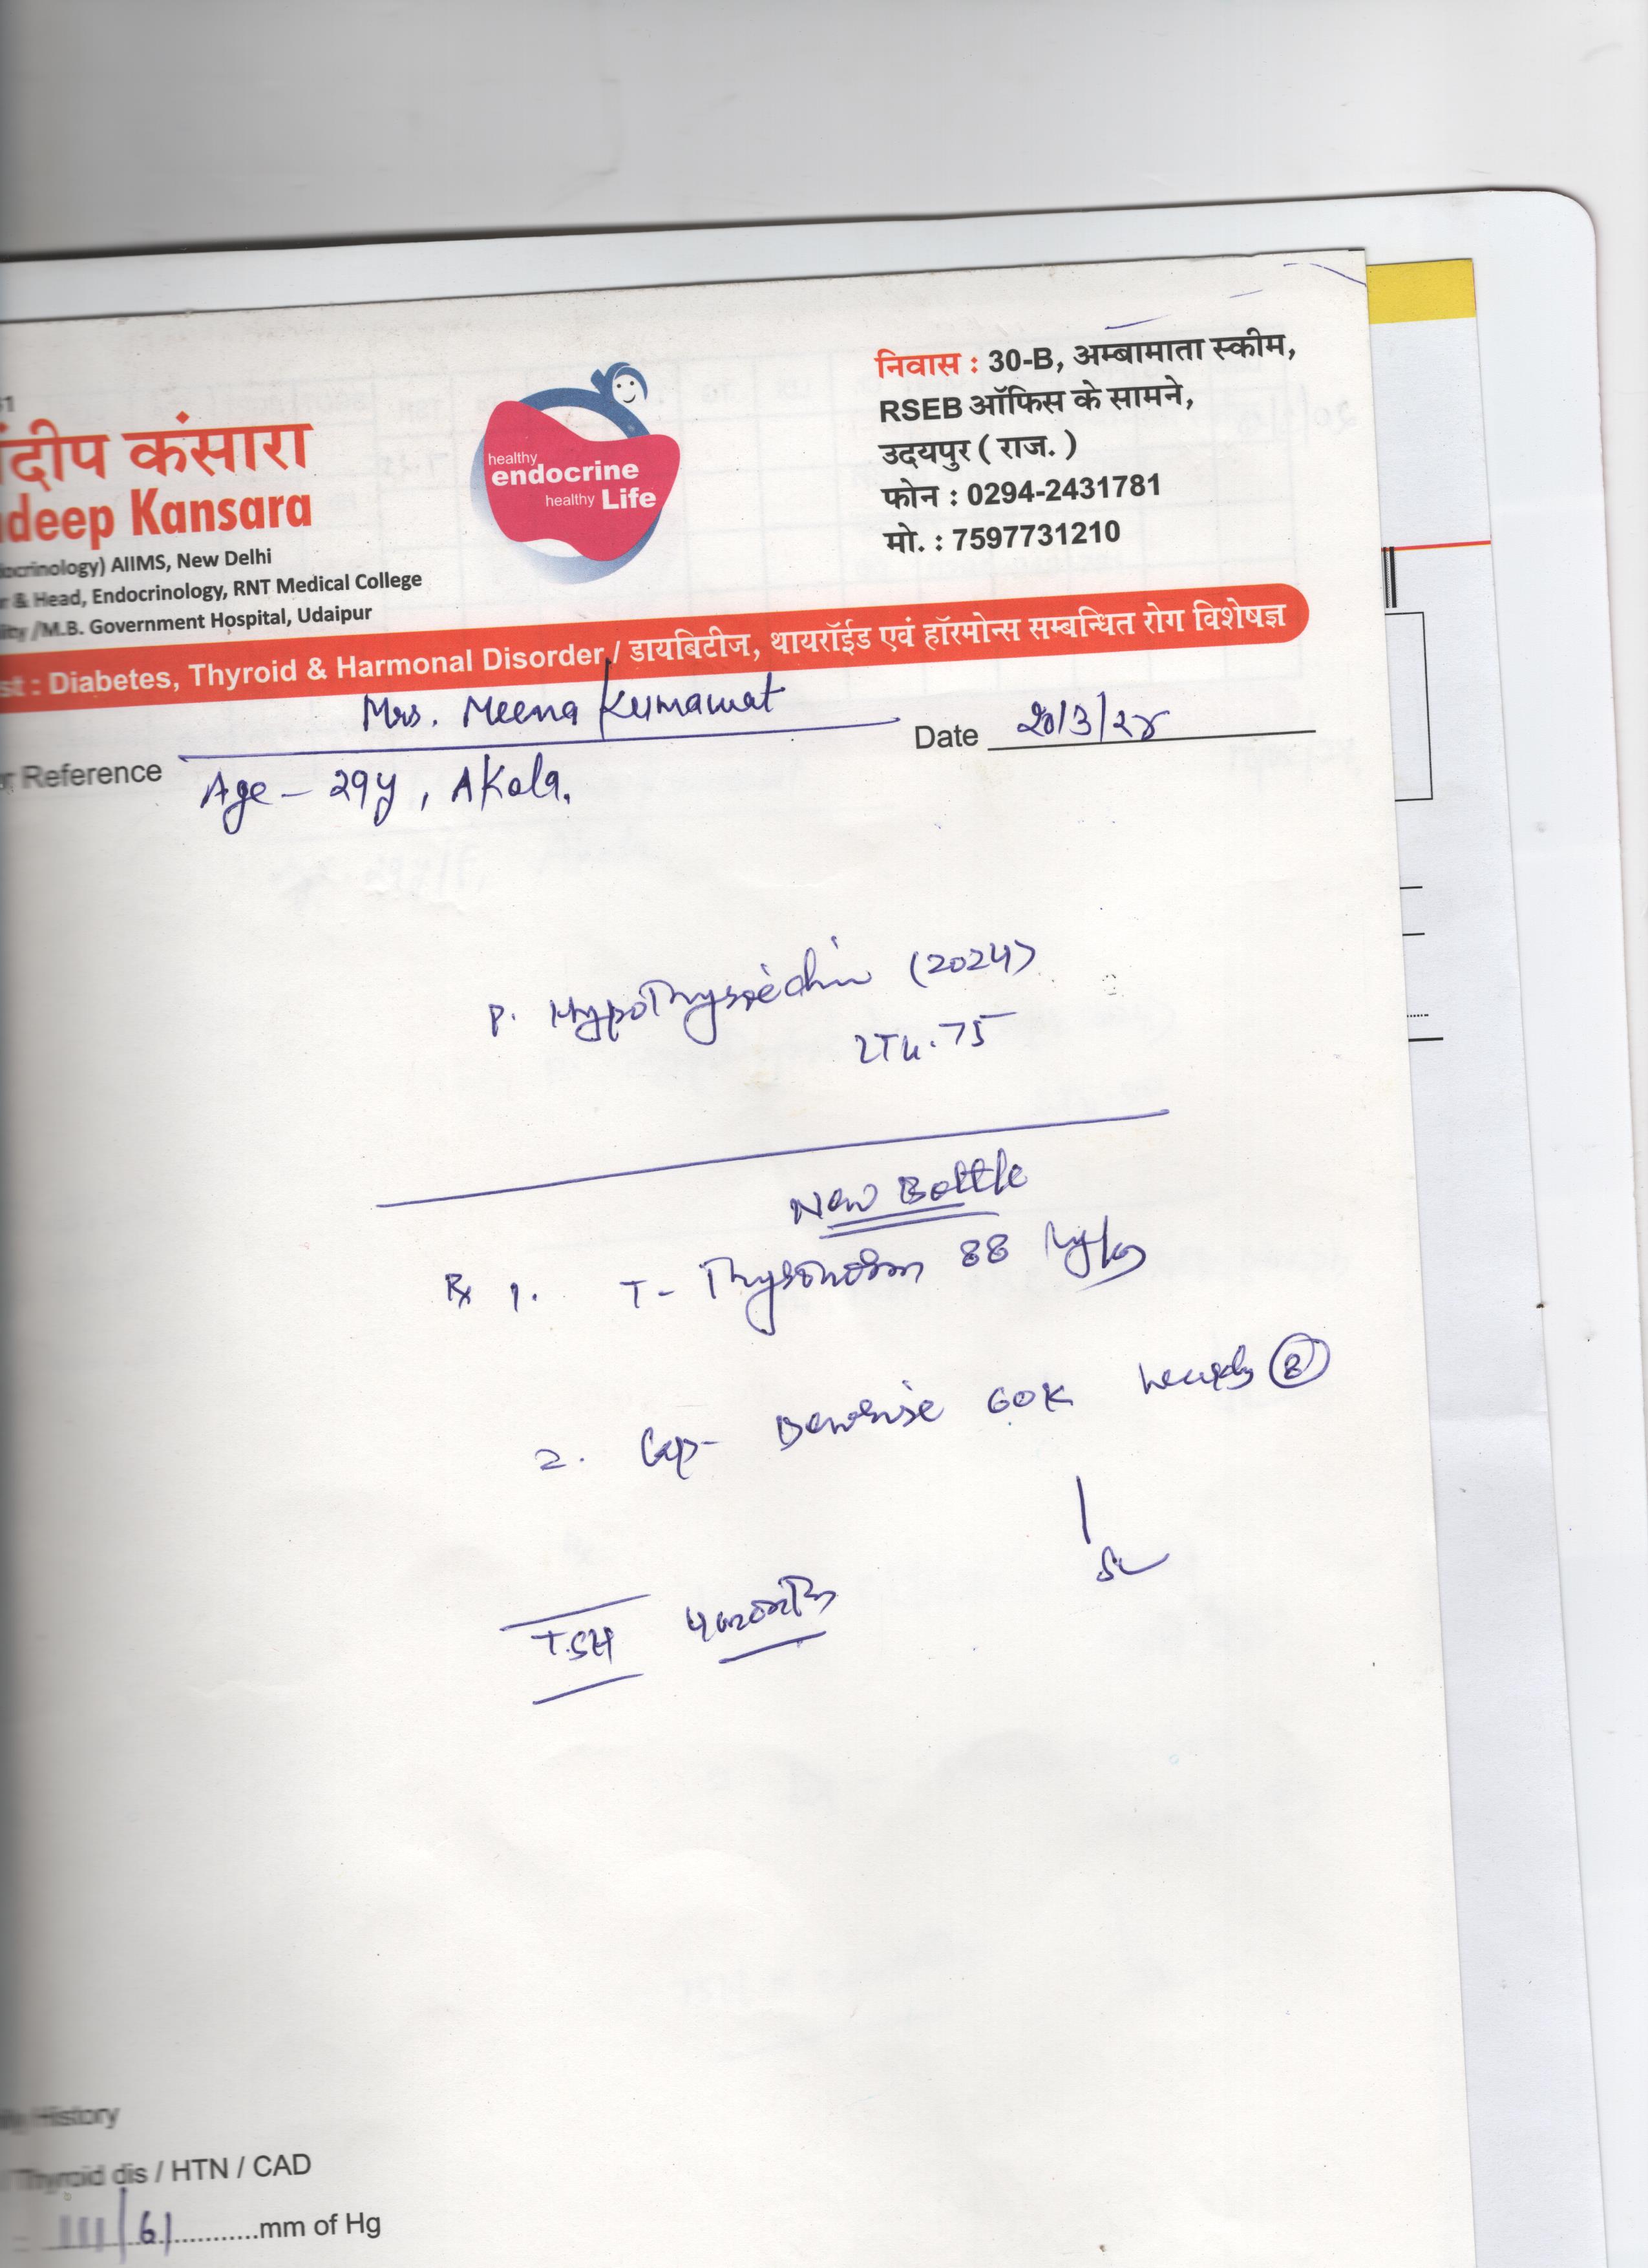 निवास : 30-B, अम्बामाता स्कीम,
RSEB ऑफिस के सामने,
उदयपुर ( राज. )
फोन : 0294-2431781
मो. : 7597731210
ंदीप कंसारा
deep Kansara
ocrinology) AIIMS, New Delhi
r & Head, Endocrinology, RNT Medical College
lity /M.B. Government Hospital, Udaipur
healthy
endocrine
healthy Life
st : Diabetes, Thyroid & Harmonal Disorder / डायबिटीज, थायरॉईड एवं हॉरमोन्स सम्बन्धित रोग विशेषज्ञ
Mrs. Meena Kumawat
Date 20/3/
r Reference
Age - 29y, Akola.
P. Hypothyroidin (2024)
75
New Bottle
Rx 1. T- Thyronorm 88
2. Cap- 60K weekly (8)
TSH 4 month
History
Thyroid dis / HTN / CAD
111/61 mm of Hg